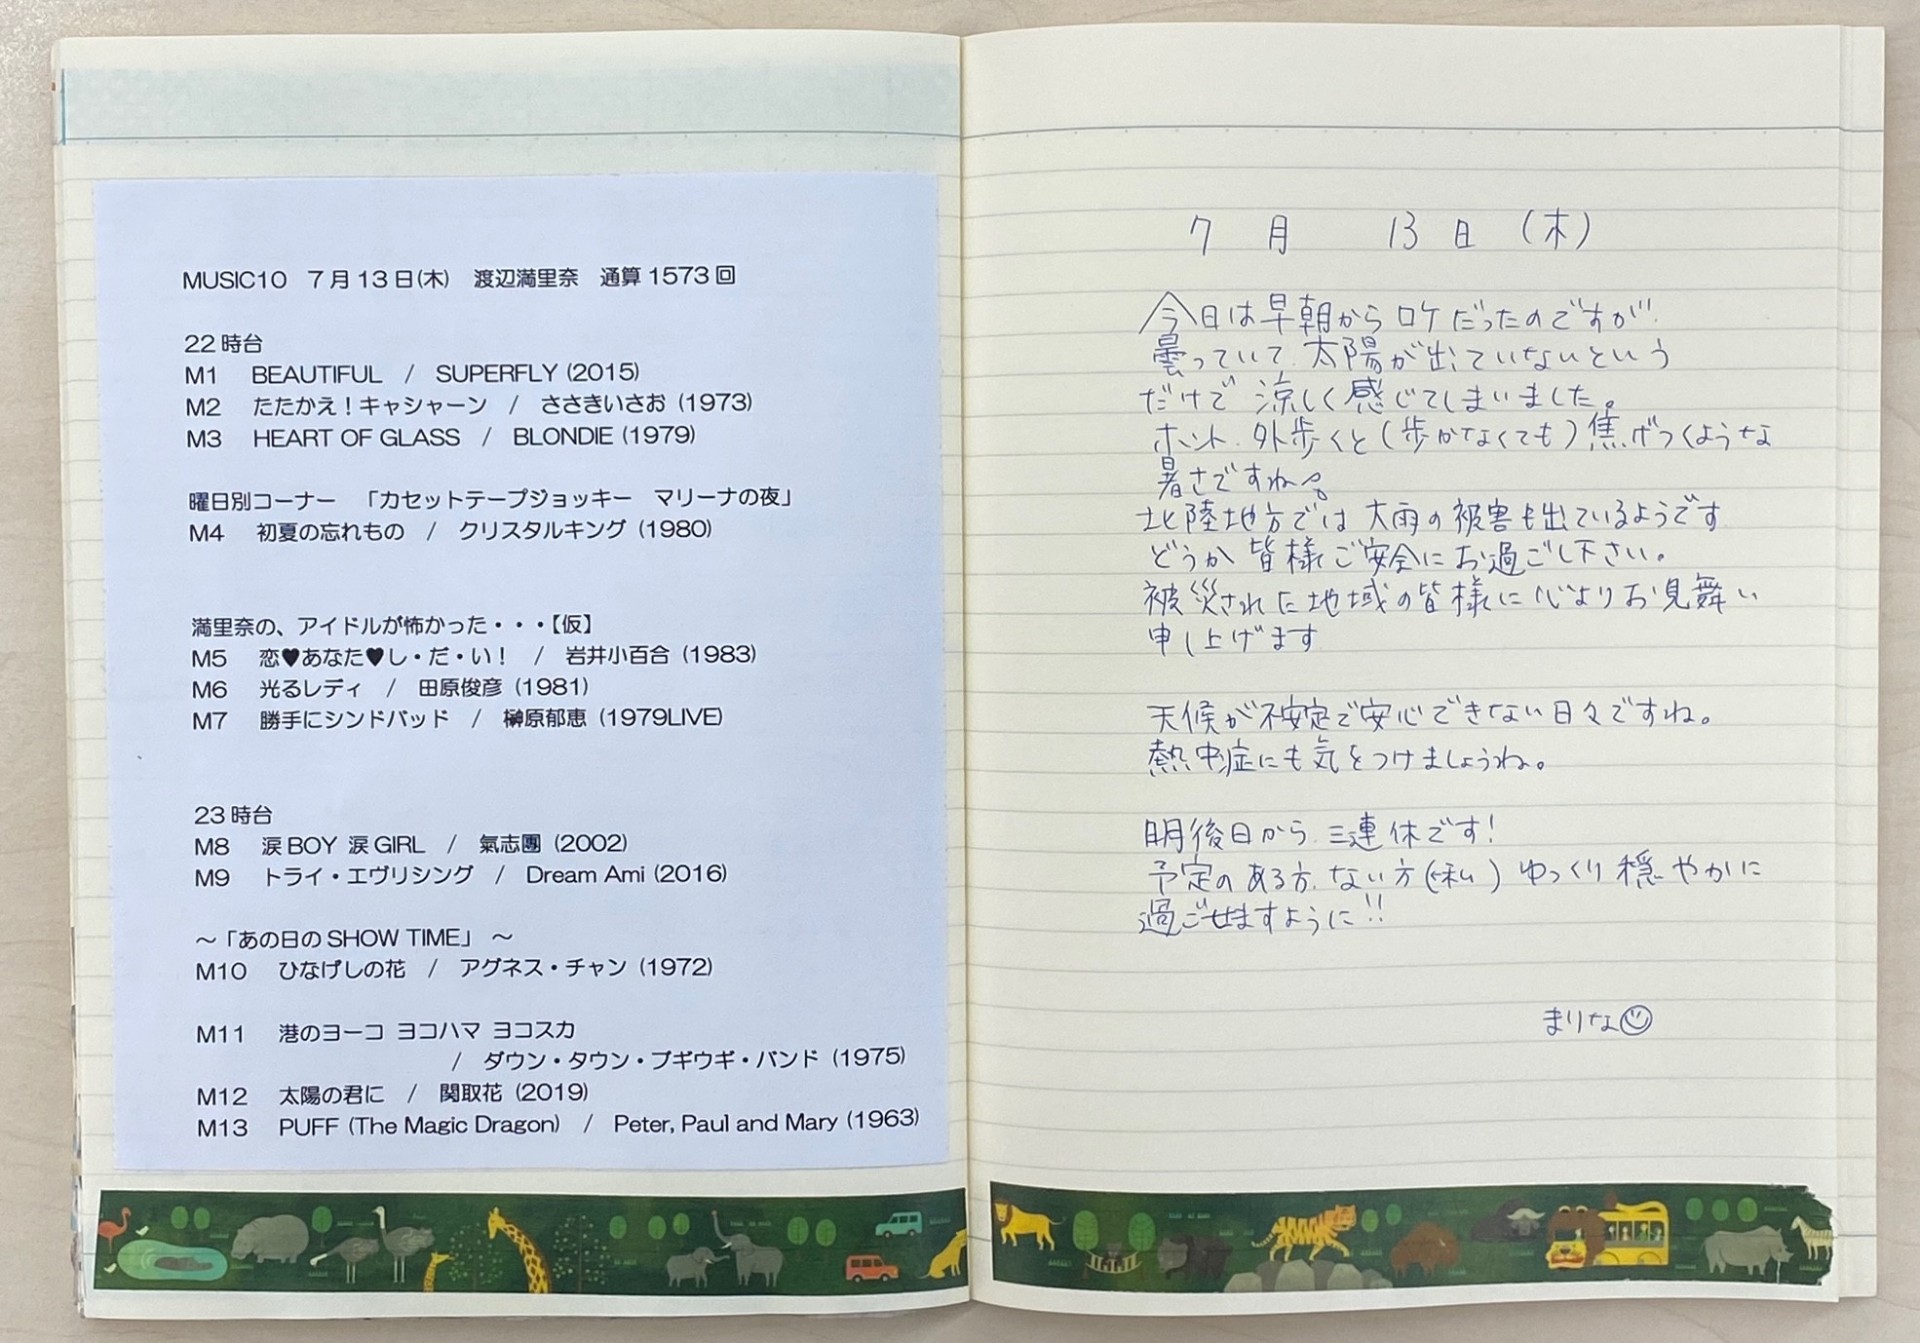 MUSIC10 7月13日(木) 渡辺満里奈 通算1573回
22時台
M1 BEAUTIFUL / SUPERFLY (2015)
M2 たたかえ！キャシャーン / ささきいさお (1973)
M3 HEART OF GLASS / BLONDIE (1979)
曜日別コーナー 「カセットテープジョッキー マリーナの夜」
M4 初夏の忘れもの / クリスタルキング (1980)
満里奈の、アイドルが怖かった・・・【仮】
M5 恋♥あなた♥し・だ・い！ / 岩井小百合 (1983)
M6 光るレディ / 田原俊彦 (1981)
M7 勝手にシンドバッド / 榊原郁恵 (1979LIVE)
23時台
M8 涙BOY 涙GIRL / 氣志團 (2002)
M9 トライ・エヴリシング / Dream Ami (2016)
～「あの日のSHOW TIME」～
M10 ひなげしの花 / アグネス・チャン (1972)
M11 港のヨーコ ヨコハマ ヨコスカ
/ ダウン・タウン・ブギウギ・バンド (1975)
M12 太陽の君に / 関取花 (2019)
M13 PUFF (The Magic Dragon) / Peter, Paul and Mary (1963)
7月 13日 (木)
今日は早朝からロケだったのですが、
曇っていて、太陽が出ていないという
だけで 涼しく感じてしまいました。
ホント、外歩くと(歩かなくても)焦げつくような
暑さですね。
北陸地方では 大雨の被害も出ているようです
どうか 皆様 ご安全にお過ごし下さい。
被災された地域の皆様に心よりお見舞い
申し上げます
天候が不安定で安心できない日々ですね。
熱中症にも気をつけましょうね。
明後日から、三連休です！
予定のある方、ない方(私) ゆっくり穏やかに
過ごせますように!!
まりな☺